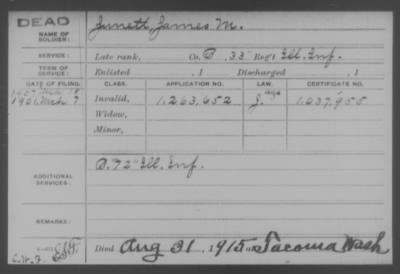 DEAD
NAME OF SOLDIER:
James M.
SERVICE:
Late rank, Co. B, 33" Reg't Ill. Inf.
TERM OF SERVICE:
Enlisted , 1 Discharged , 1
DATE OF FILING. CLASS. APPLICATION NO. LAW. CERTIFICATE NO.
1901 Mch 7 Invalid, 1,263,652 1,237,955
Widow,
Minor,
ADDITIONAL SERVICES:
B. 72" Ill. Inf.
REMARKS:
Died Aug 31, 1915, Tacoma Wash